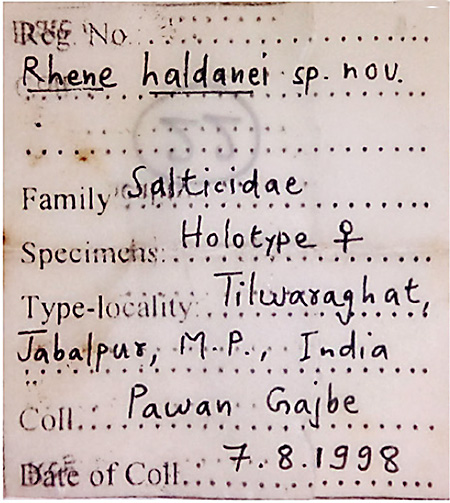 Reg. No.
Rhene haldanei sp. nov.
Family Salticidae
Specimens: Holotype ♀
Type-locality: Tilwaraghat,
Jabalpur, M.P., India
Coll. Pawan Gajbe
Date of Coll. 7.8.1998